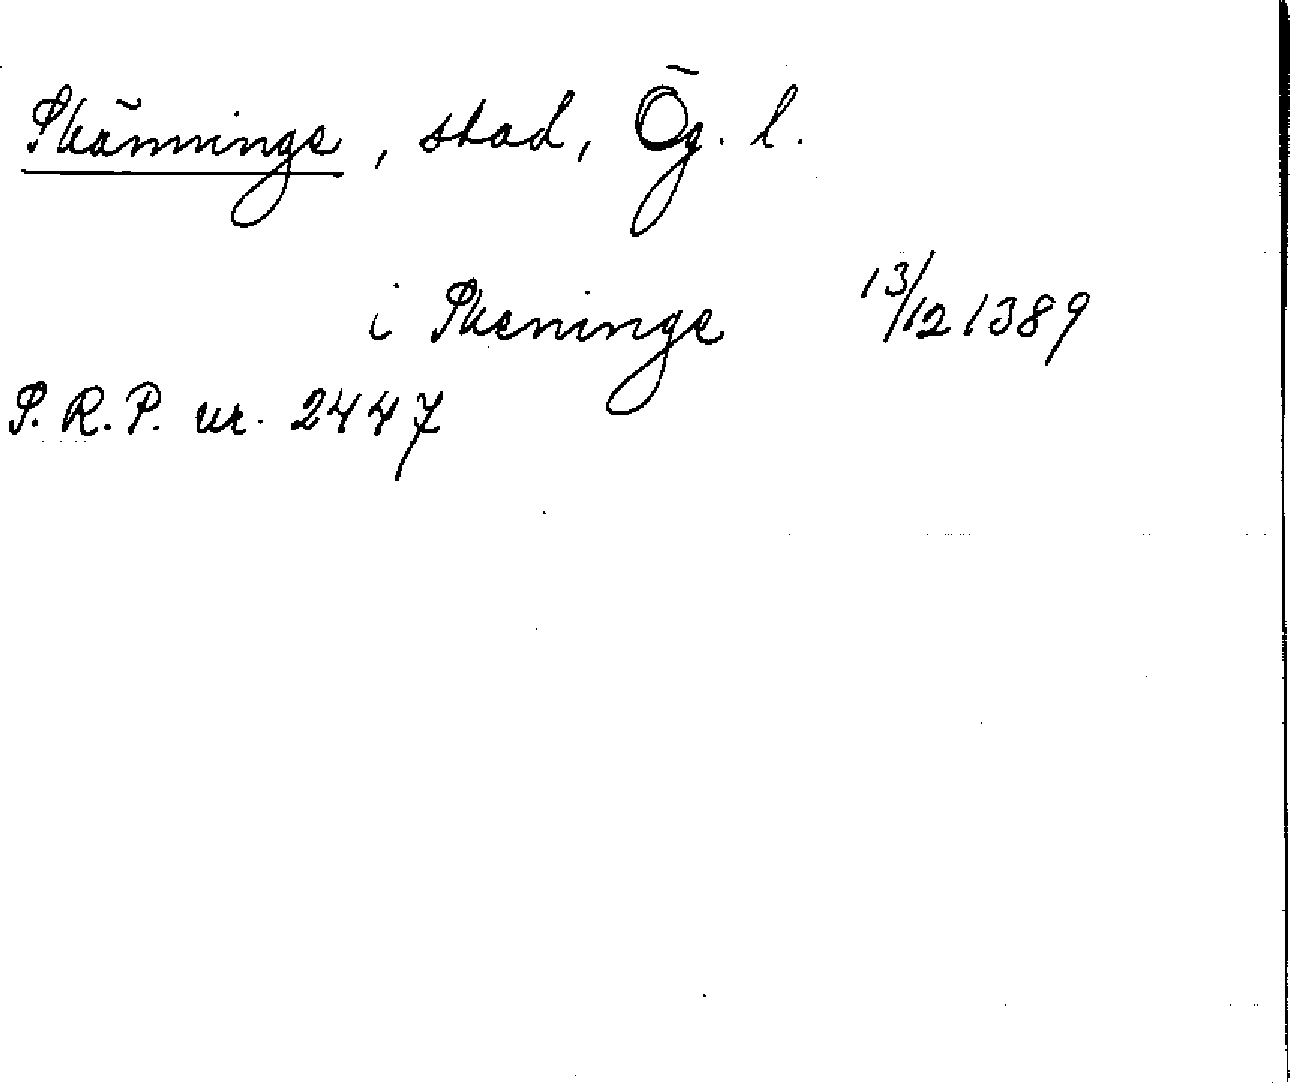 Skänninge, stad, Ög. l.
i Skeninge 13/12 1389
S. R. P. nr. 2447